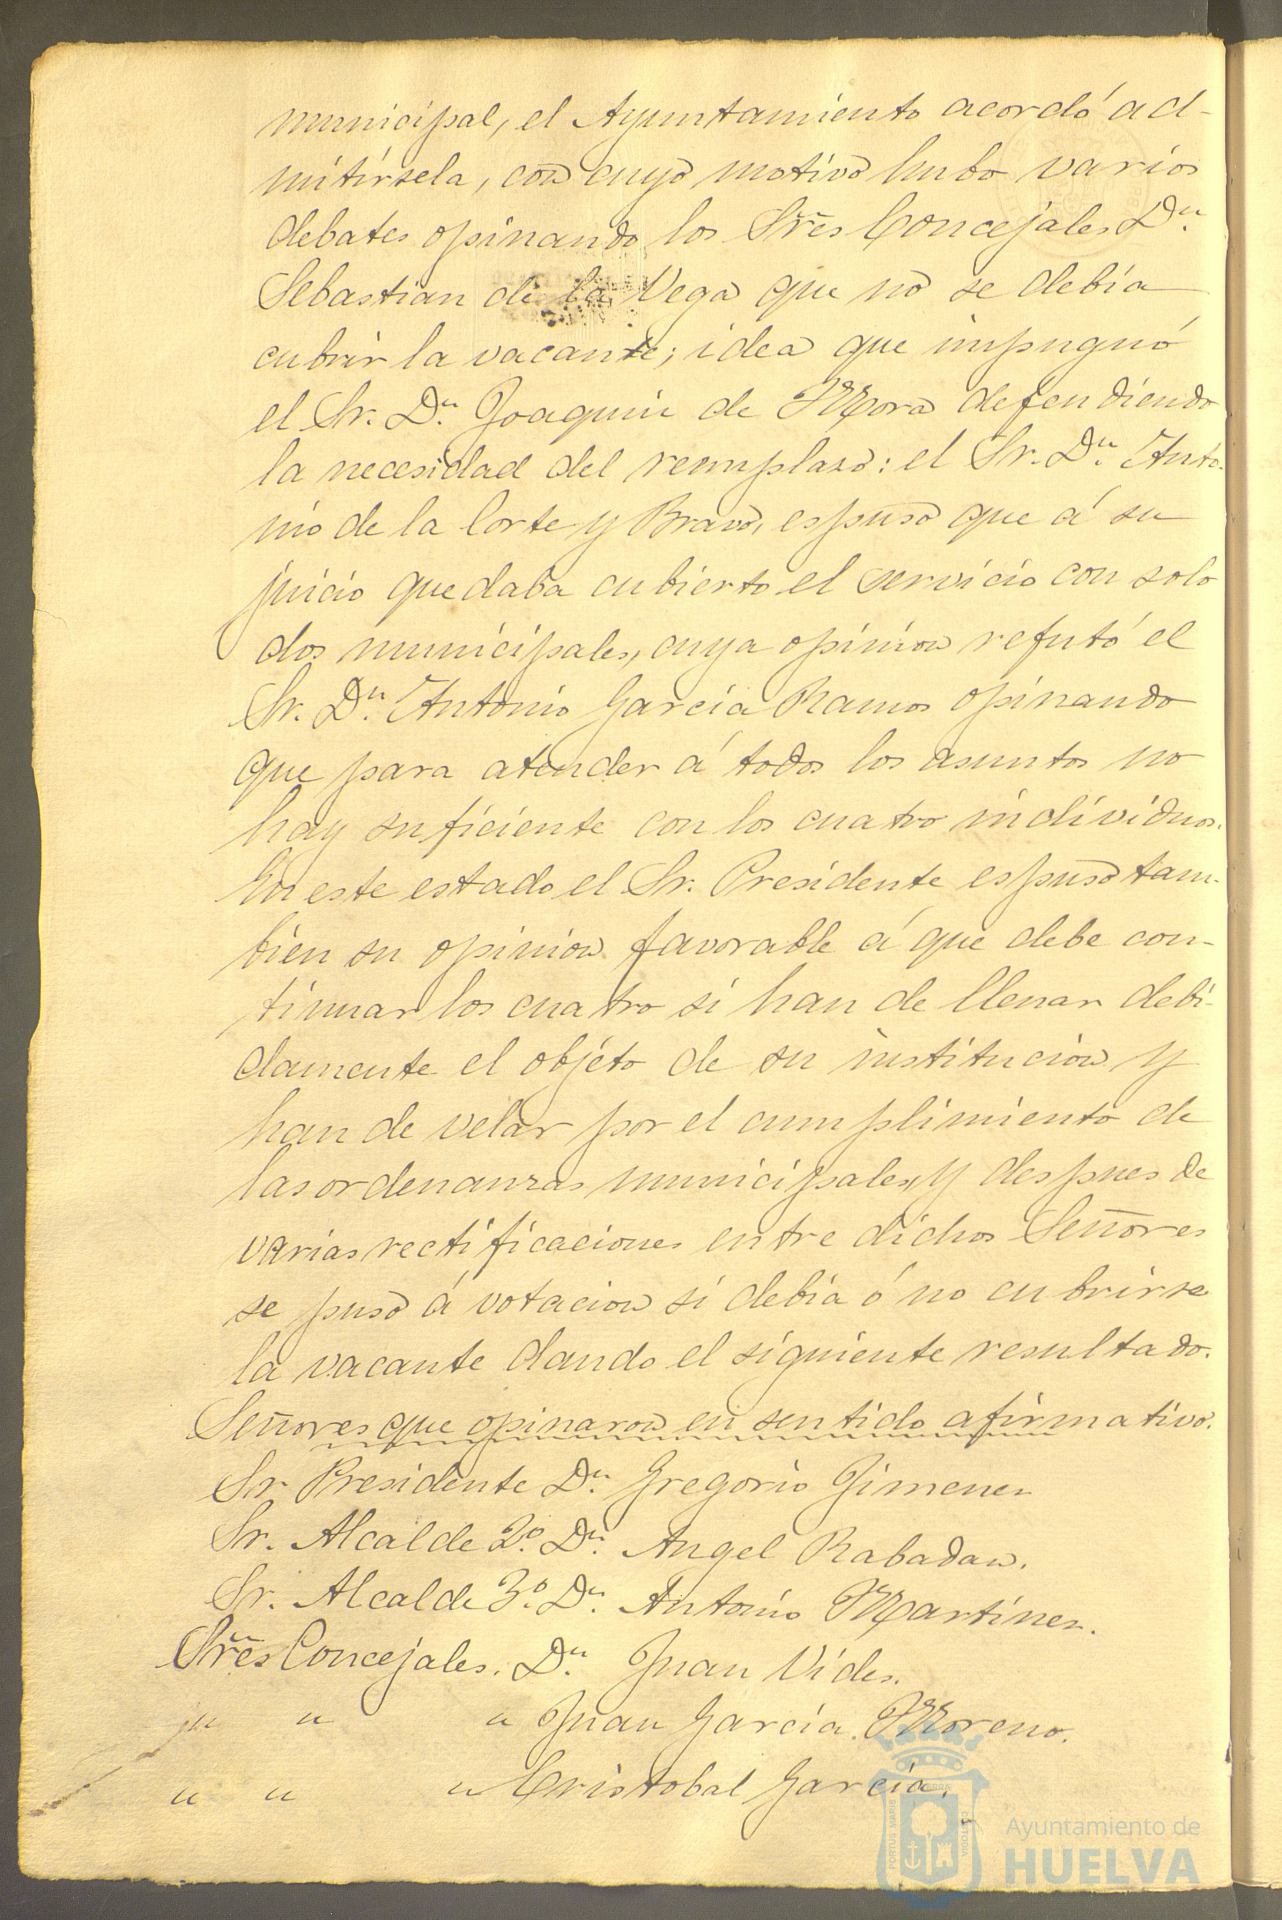 municipal, el Ayuntamiento acordó ad-
mitírsela, con cuyo motivo hubo varios
debates opinando los Sres Concejales Dn.
Sebastian de la Vega que no se debía
cubrir la vacante; idea que impugnó
el Sr. Dn. Joaquin de Mora defendiendo
la necesidad del remplazo: el Sr. Dn. Anto-
nio de la Corte y Bravo, espuso que á su
juicio quedaba cubierto el servicio con solo
dos municipales, cuya opinion refutó el
Sr. Dn. Antonio García Ramos opinando
que para atender á todos los asuntos no
hay suficiente con los cuatro individuos.
En este estado el Sr. Presidente espuso tam-
bien su opinion favorable á que debe con-
tinuar los cuatro si han de llenar debi-
damente el objeto de su institucion y
han de velar por el cumplimiento de
las ordenanzas municipales, y despues de
varias rectificaciones entre dichos Señores
se puso á votacion si debía ó no cubrirse
la vacante dando el siguiente resultado.
Señores que opinaron en sentido afirmativo.
Sr Presidente Dn. Gregorio Jimenez
Sr. Alcalde 2º. Dn. Angel Rabadan.
Sr. Alcalde 3º. Dn. Antonio Martinez.
Sres Concejales. Dn. Juan Vides.
" " " Juan García Moreno.
" " " Cristobal García.
PORTUS MARIS
CUSTODIA
Ayuntamiento de
HUELVA